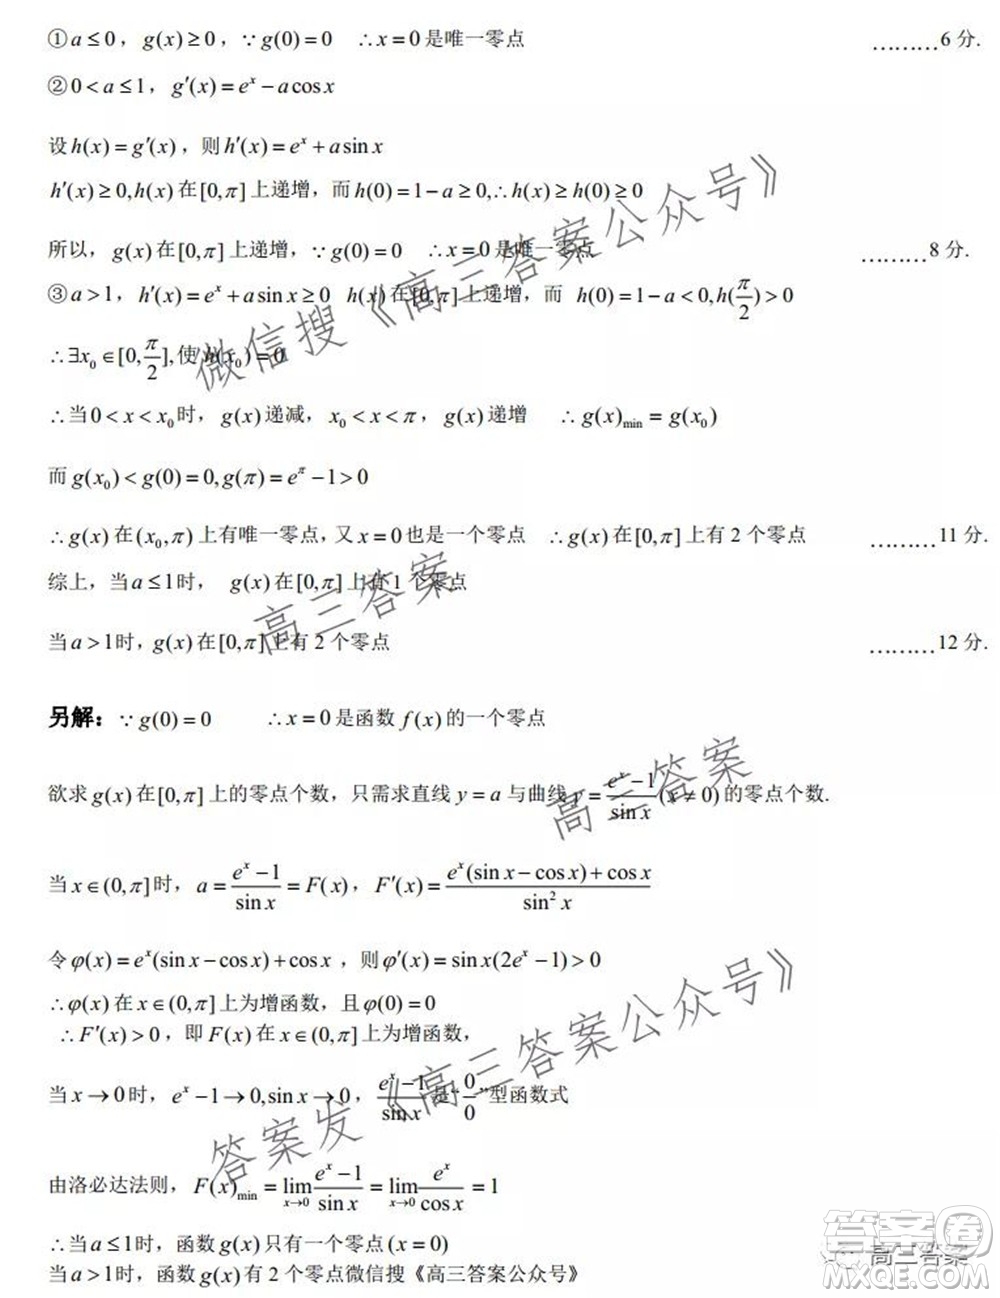 ①a≤0，g(x)≥0，∵g(0)=0 ∴x=0是唯一零点 ………6分.
②0<a≤1，g′(x)=e^x−acosx
设h(x)=g′(x)，则h′(x)=e^x+asinx
h′(x)≥0,h(x)在[0,π]上递增，而h(0)=1−a≥0,∴h(x)≥h(0)≥0
所以，g(x)在[0,π]上递增，∵g(0)=0 ∴x=0是唯一零点 ………8分.
③a>1，h′(x)=e^x+asinx≥0 h(x)在[0,π]上递增，而 h(0)=1−a<0,h(π/2)>0
∴∃x₀∈[0,π/2],使h(x₀)=0
∴当0<x<x₀时，g(x)递减，x₀<x<π，g(x)递增 ∴g(x)min=g(x₀)
而g(x₀)<g(0)=0,g(π)=e^π−1>0
∴g(x)在(x₀,π)上有唯一零点，又x=0也是一个零点 ∴g(x)在[0,π]上有2个零点 ………11分.
综上，当a≤1时， g(x)在[0,π]上有1个零点
当a>1时，g(x)在[0,π]上有2个零点 ………12分.
另解：∵g(0)=0 ∴x=0是函数f(x)的一个零点
欲求g(x)在[0,π]上的零点个数，只需求直线y=a与曲线y=(e^x−1)/sinx(x≠0)的零点个数.
当x∈(0,π]时，a=(e^x−1)/sinx=F(x)，F′(x)=(e^x(sinx−cosx)+cosx)/sin²x
令φ(x)=e^x(sinx−cosx)+cosx，则φ′(x)=sinx(2e^x−1)>0
∴φ(x)在x∈(0,π]上为增函数，且φ(0)=0
∴F′(x)>0，即F(x)在x∈(0,π]上为增函数，
当x→0时，e^x−1→0,sinx→0，(e^x−1)/sinx是“0/0”型函数式
由洛必达法则，F(x)min=lim(x→0)(e^x−1)/sinx=lim(x→0)e^x/cosx=1
∴当a≤1时，函数g(x)只有一个零点(x=0)
当a>1时，函数g(x)有2个零点微信搜《高三答案公众号》
微信搜《高三答案公众号》
高三答案
高三答案
答案发《高三答案公众号》
答案圈
高三答案